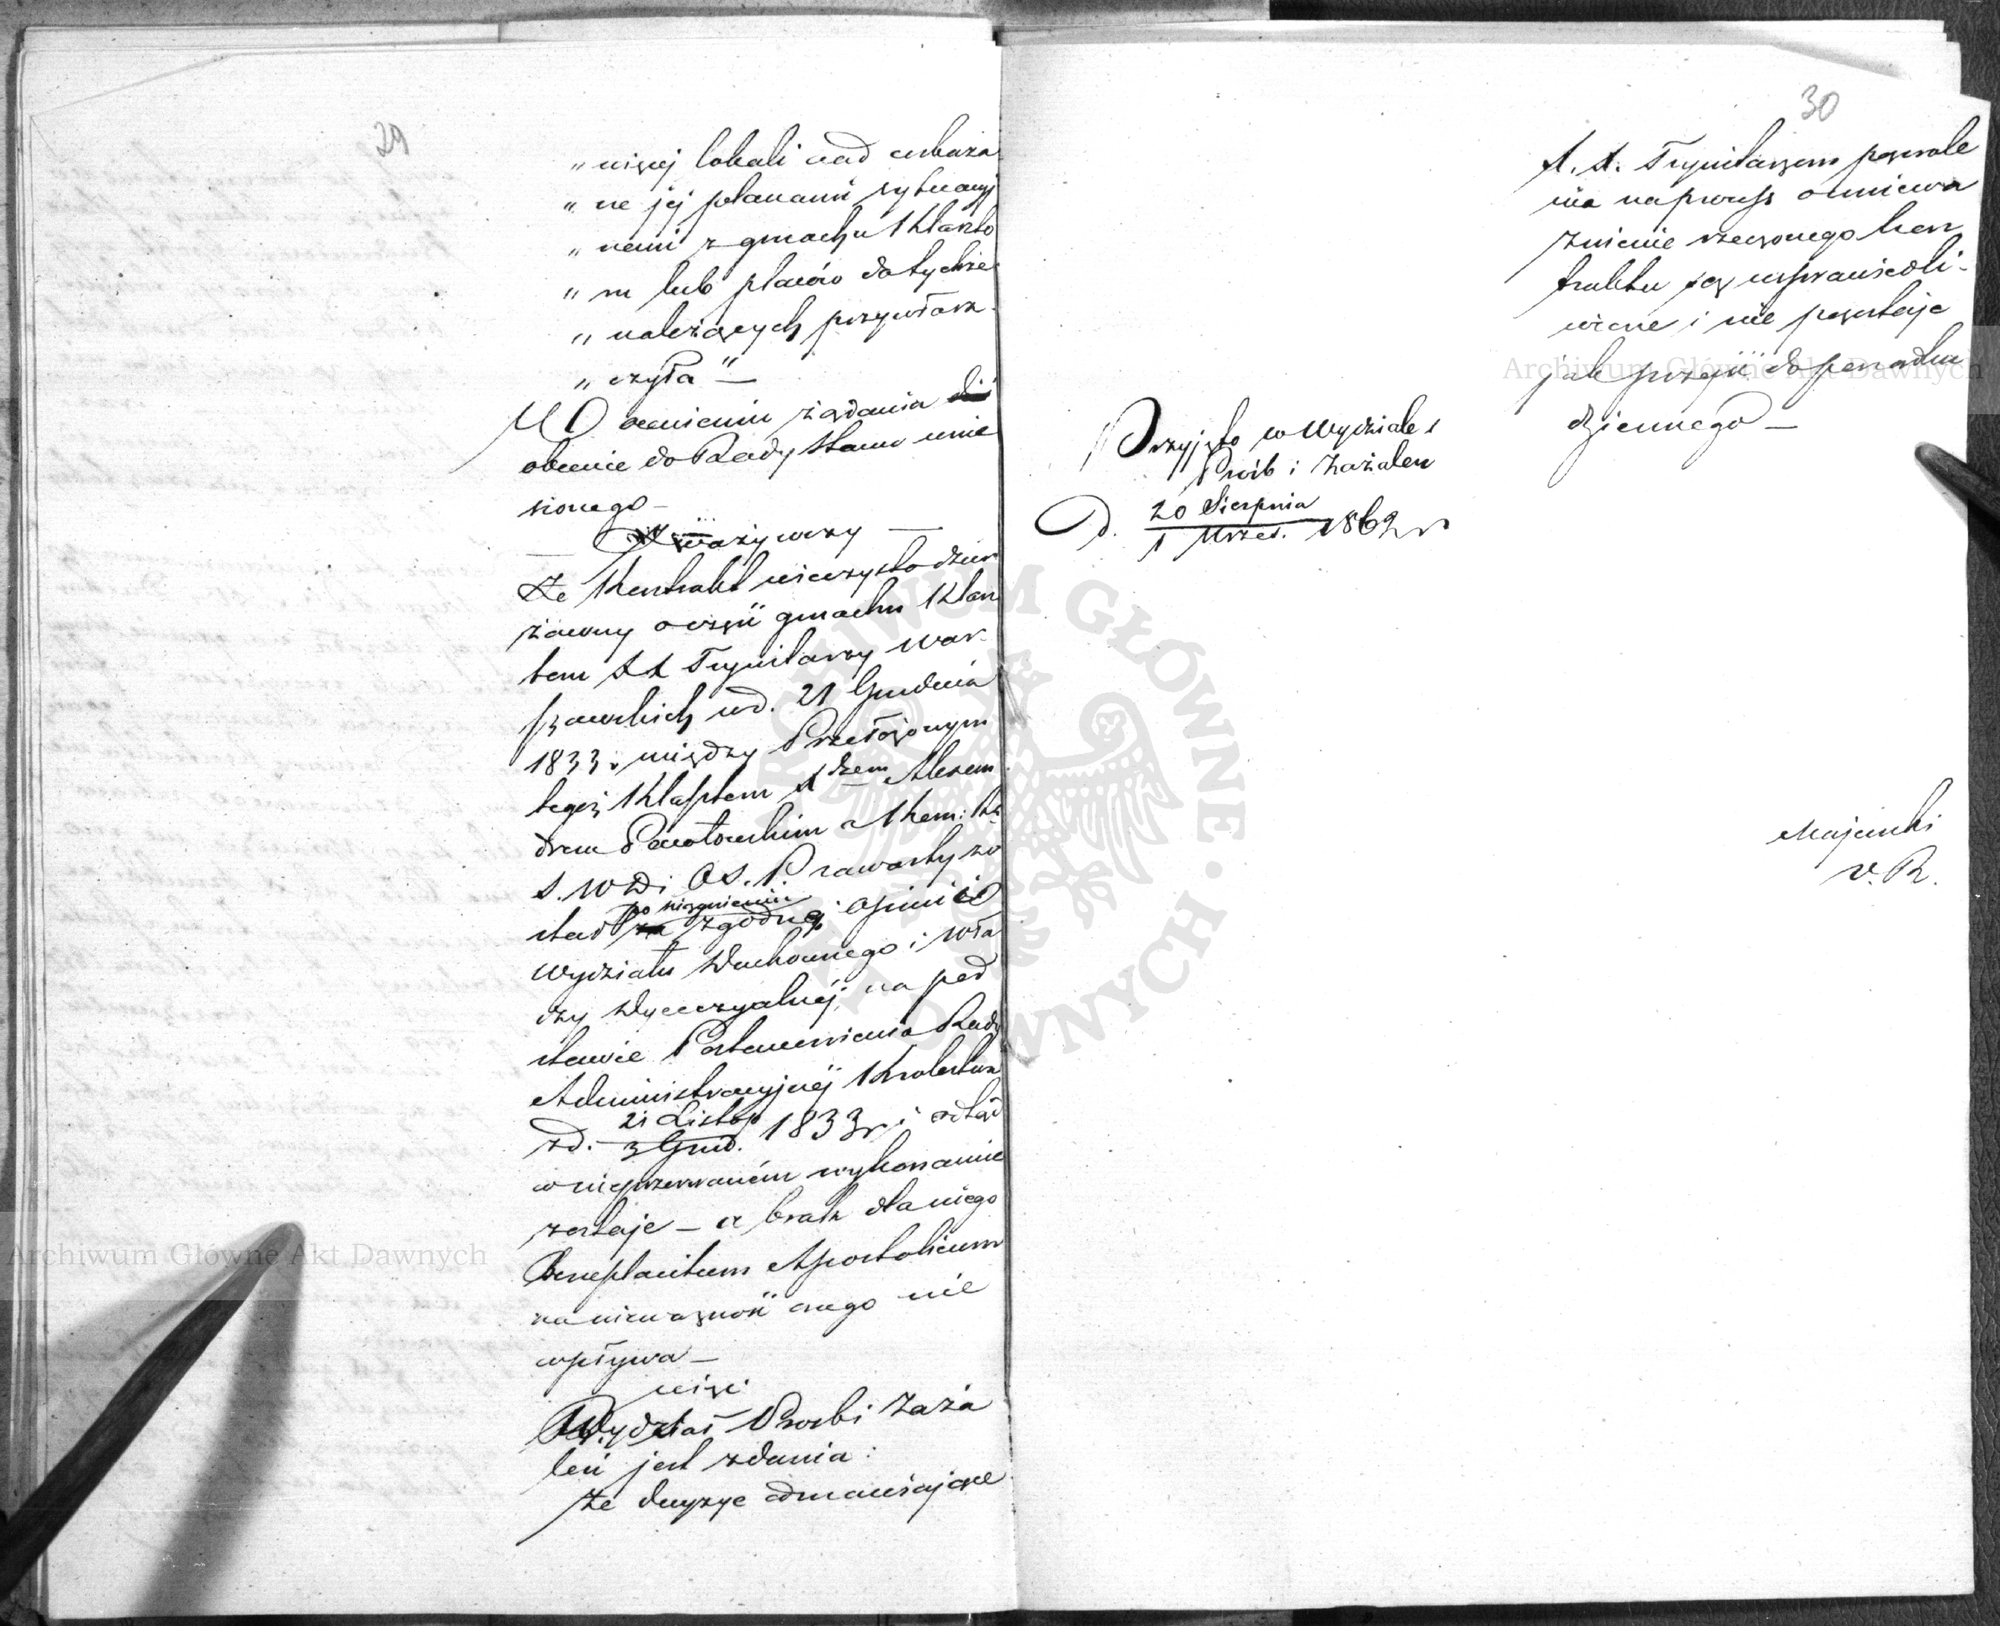 29
„ więcej lokali nad wskaza
„ ne jej planami sytuacyj
„ nemi z gmachu Klaszto
„ ru lub placów do tychże
„ należących przywłasz
„ czyła" —
W Ocenieniu żądania
obecnie do Rady Stanu wnie
sionego —
Zważywszy —
Że Kontrakt wieczysto dzier
żawny o część gmachu Klasz
toru XX Trynitarzy War
szawskich w d. 21 Grudnia
1833 r. między Przełożonym
tegoż Klasztoru Xdzem Alexan
drem Pawłowskim a Kom: Rz.
S. W. D. i Os. P. zawarty zo
stał po zasięgnieniu zgodnej opinii
Wydziału Duchownego i Wła
dzy Dyecezyalnéj, na pod
stawie Postanowienia Rady
Administracyjnéj Królestwa
z d. 21 Listop / 3 Grud. 1833 r. i odtąd
w nieprzerwaném wykonaniu
zostaje — a brak dla niego
Beneplacitum Apostolicum
na nieważność onego nie
wpływa —
więc
Wydział Prośb i Zaża
leń jest zdania:
Że decyzye odmawiające
30
X. X. Trynitarzom pozwole
nia na process o uniewa
żnienie rzeczonego kon
traktu są usprawiedli-
wione i nie pozostaje
jak przejść do porządku
dziennego —
Przyjęto w Wydziale
Próśb i Zażaleń
D. 20 Sierpnia / 1 Wrześ. 1862 r
Majewski
v. R.
Archiwum Główne Akt Dawnych
Archiwum Główne Akt Dawnych
ARCHIWUM GŁÓWNE AKT DAWNYCH